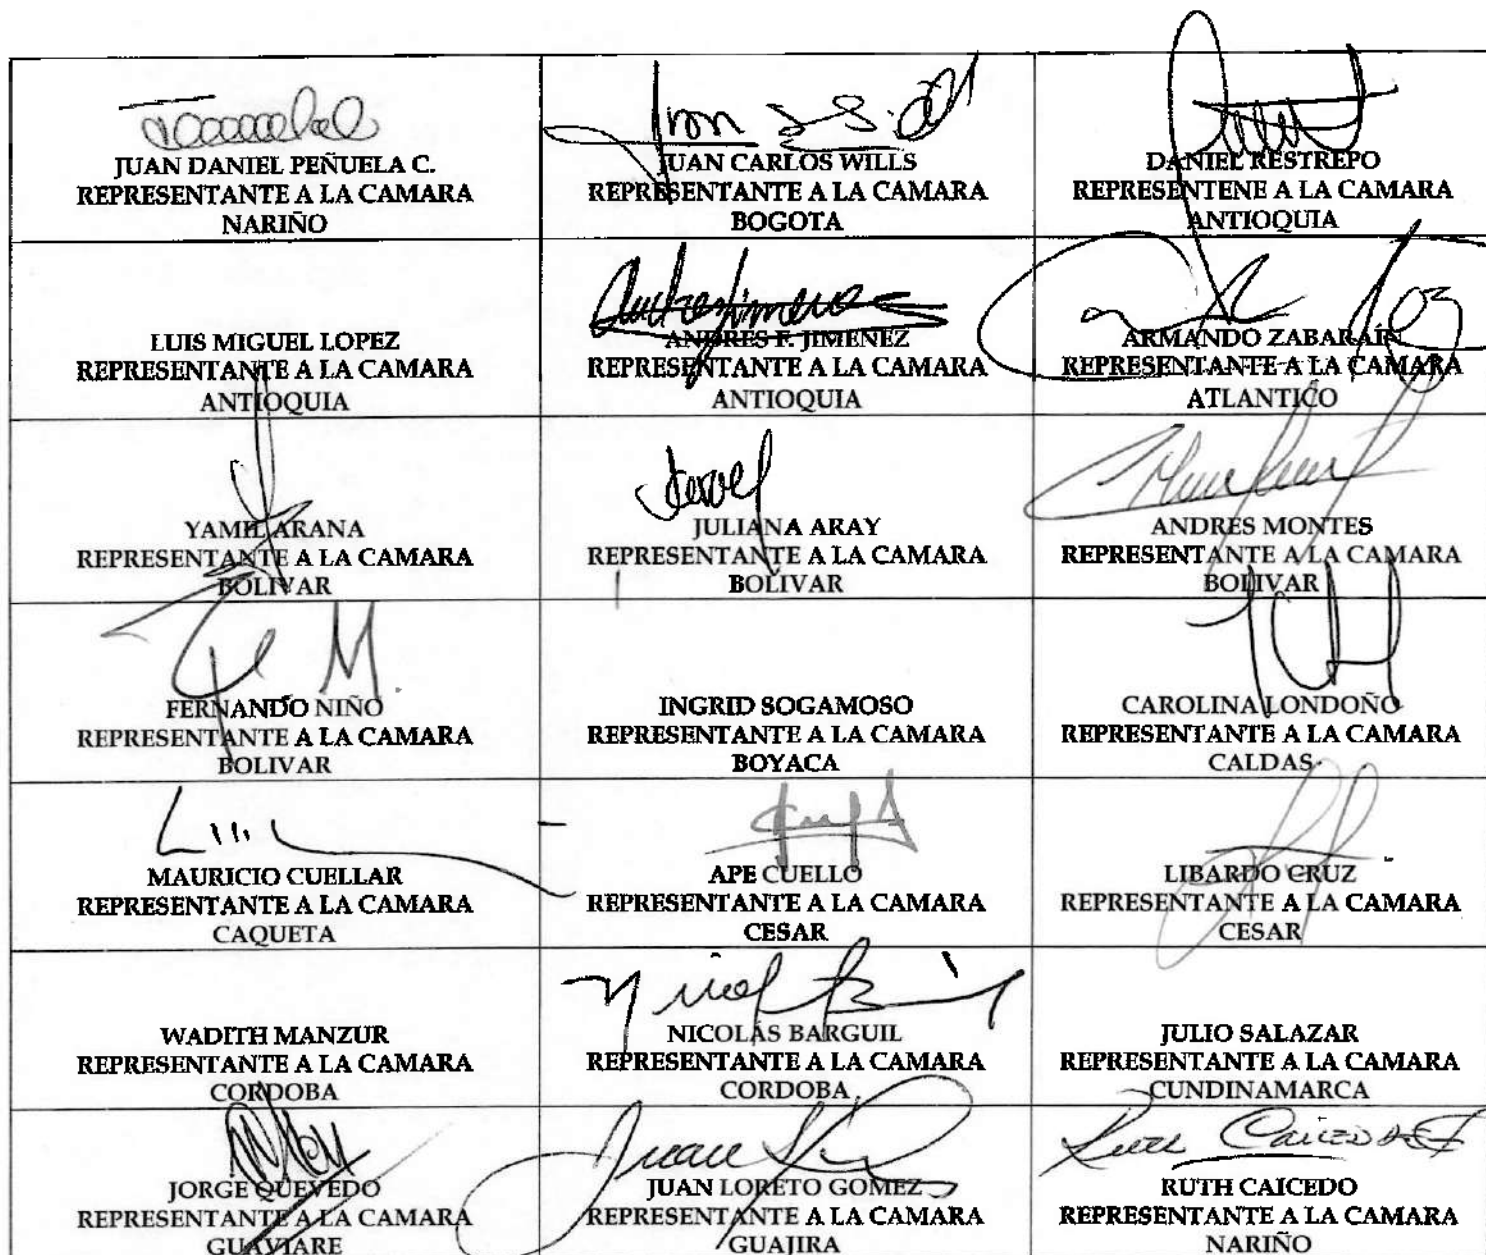 JUAN DANIEL PEÑUELA C.
REPRESENTANTE A LA CAMARA
NARIÑO
JUAN CARLOS WILLS
REPRESENTANTE A LA CAMARA
BOGOTA
DANIEL RESTREPO
REPRESENTENE A LA CAMARA
ANTIOQUIA
LUIS MIGUEL LOPEZ
REPRESENTANTE A LA CAMARA
ANTIOQUIA
ANDRES F. JIMENEZ
REPRESENTANTE A LA CAMARA
ANTIOQUIA
ARMANDO ZABARAÍN
REPRESENTANTE A LA CAMARA
ATLANTICO
YAMIL ARANA
REPRESENTANTE A LA CAMARA
BOLIVAR
JULIANA ARAY
REPRESENTANTE A LA CAMARA
BOLIVAR
ANDRES MONTES
REPRESENTANTE A LA CAMARA
BOLIVAR
FERNANDO NIÑO
REPRESENTANTE A LA CAMARA
BOLIVAR
INGRID SOGAMOSO
REPRESENTANTE A LA CAMARA
BOYACA
CAROLINA LONDOÑO
REPRESENTANTE A LA CAMARA
CALDAS
MAURICIO CUELLAR
REPRESENTANTE A LA CAMARA
CAQUETA
APE CUELLO
REPRESENTANTE A LA CAMARA
CESAR
LIBARDO CRUZ
REPRESENTANTE A LA CAMARA
CESAR
WADITH MANZUR
REPRESENTANTE A LA CAMARA
CORDOBA
NICOLÁS BARGUIL
REPRESENTANTE A LA CAMARA
CORDOBA
JULIO SALAZAR
REPRESENTANTE A LA CAMARA
CUNDINAMARCA
JORGE QUEVEDO
REPRESENTANTE A LA CAMARA
GUAVIARE
JUAN LORETO GOMEZ
REPRESENTANTE A LA CAMARA
GUAJIRA
RUTH CAICEDO
REPRESENTANTE A LA CAMARA
NARIÑO